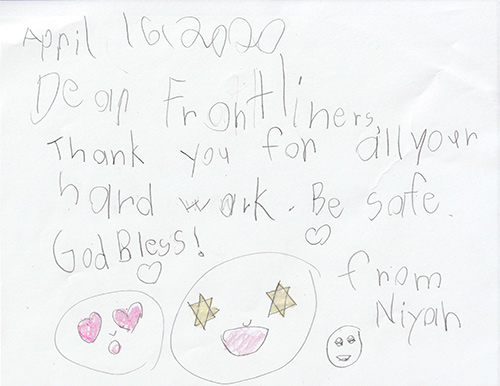 April 16, 2020
Dear Frontliners,
Thank you for all your
hard work. Be safe.
God Bless!
from
Niyah